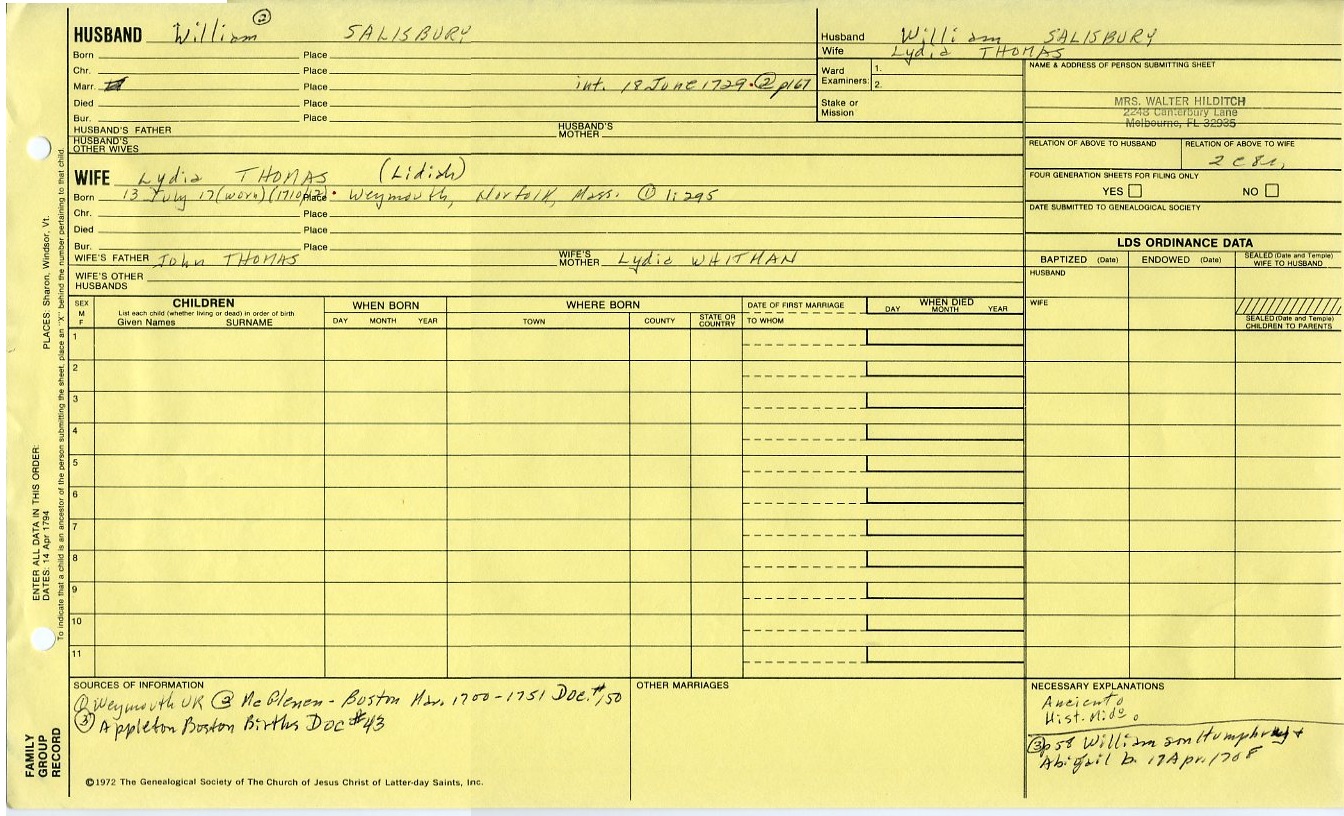 HUSBAND William ② SALISBURY
Born Place
Chr. Place
Marr. Place int. 18 June 1729 · ② p167
Died Place
Bur. Place
HUSBAND'S FATHER HUSBAND'S MOTHER
HUSBAND'S OTHER WIVES
WIFE Lydia THOMAS (Lidiah)
Born 13 July 17(worn) Place Weymouth, Norfolk, Mass. ① 1:295
Chr. Place
Died Place
Bur. Place
WIFE'S FATHER John THOMAS WIFE'S MOTHER Lydia WHITMAN
WIFE'S OTHER HUSBANDS
Husband William SALISBURY
Wife Lydia THOMAS
Ward Examiners: 1.
2.
Stake or Mission
NAME & ADDRESS OF PERSON SUBMITTING SHEET
MRS. WALTER HILDITCH
2248 Canterbury Lane
Melbourne, FL 32935
RELATION OF ABOVE TO HUSBAND RELATION OF ABOVE TO WIFE
FOUR GENERATION SHEETS FOR FILING ONLY
YES NO
DATE SUBMITTED TO GENEALOGICAL SOCIETY
LDS ORDINANCE DATA
BAPTIZED (Date) ENDOWED (Date) SEALED (Date and Temple) WIFE TO HUSBAND
HUSBAND
WIFE
SEALED (Date and Temple) CHILDREN TO PARENTS
SEX M F
CHILDREN
List each child (whether living or dead) in order of birth
Given Names SURNAME
WHEN BORN
DAY MONTH YEAR
WHERE BORN
TOWN COUNTY STATE OR COUNTRY
DATE OF FIRST MARRIAGE
TO WHOM
WHEN DIED
DAY MONTH YEAR
1
2
3
4
5
6
7
8
9
10
11
SOURCES OF INFORMATION
① Weymouth VR ② McGlenen - Boston Mar. 1700-1751 Doc. #150
③ Appleton Boston Births Doc #43
OTHER MARRIAGES
NECESSARY EXPLANATIONS
③ p58 William son Humphrey +
Abigail b. 17 Apr. 1708
©1972 The Genealogical Society of The Church of Jesus Christ of Latter-day Saints, Inc.
FAMILY GROUP RECORD
ENTER ALL DATA IN THIS ORDER:
DATES: 14 Apr 1794 PLACES: Sharon, Windsor, Vt.
To indicate that a child is an ancestor of the person submitting the sheet, place an "X" behind the number pertaining to that child.